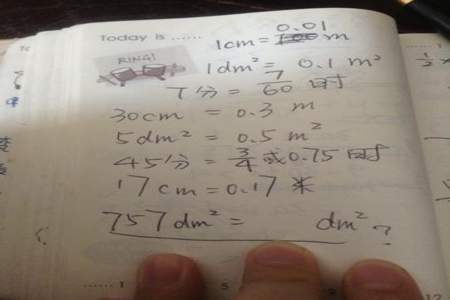 Today is ......
0.01
1cm = m
RING!
1dm² = 0.1 m²
7分 = 7/60 时
30cm = 0.3 m
5dm² = 0.5 m²
45分 = 3/4 或 0.75 时
17cm = 0.17 米
757dm² = dm² ?